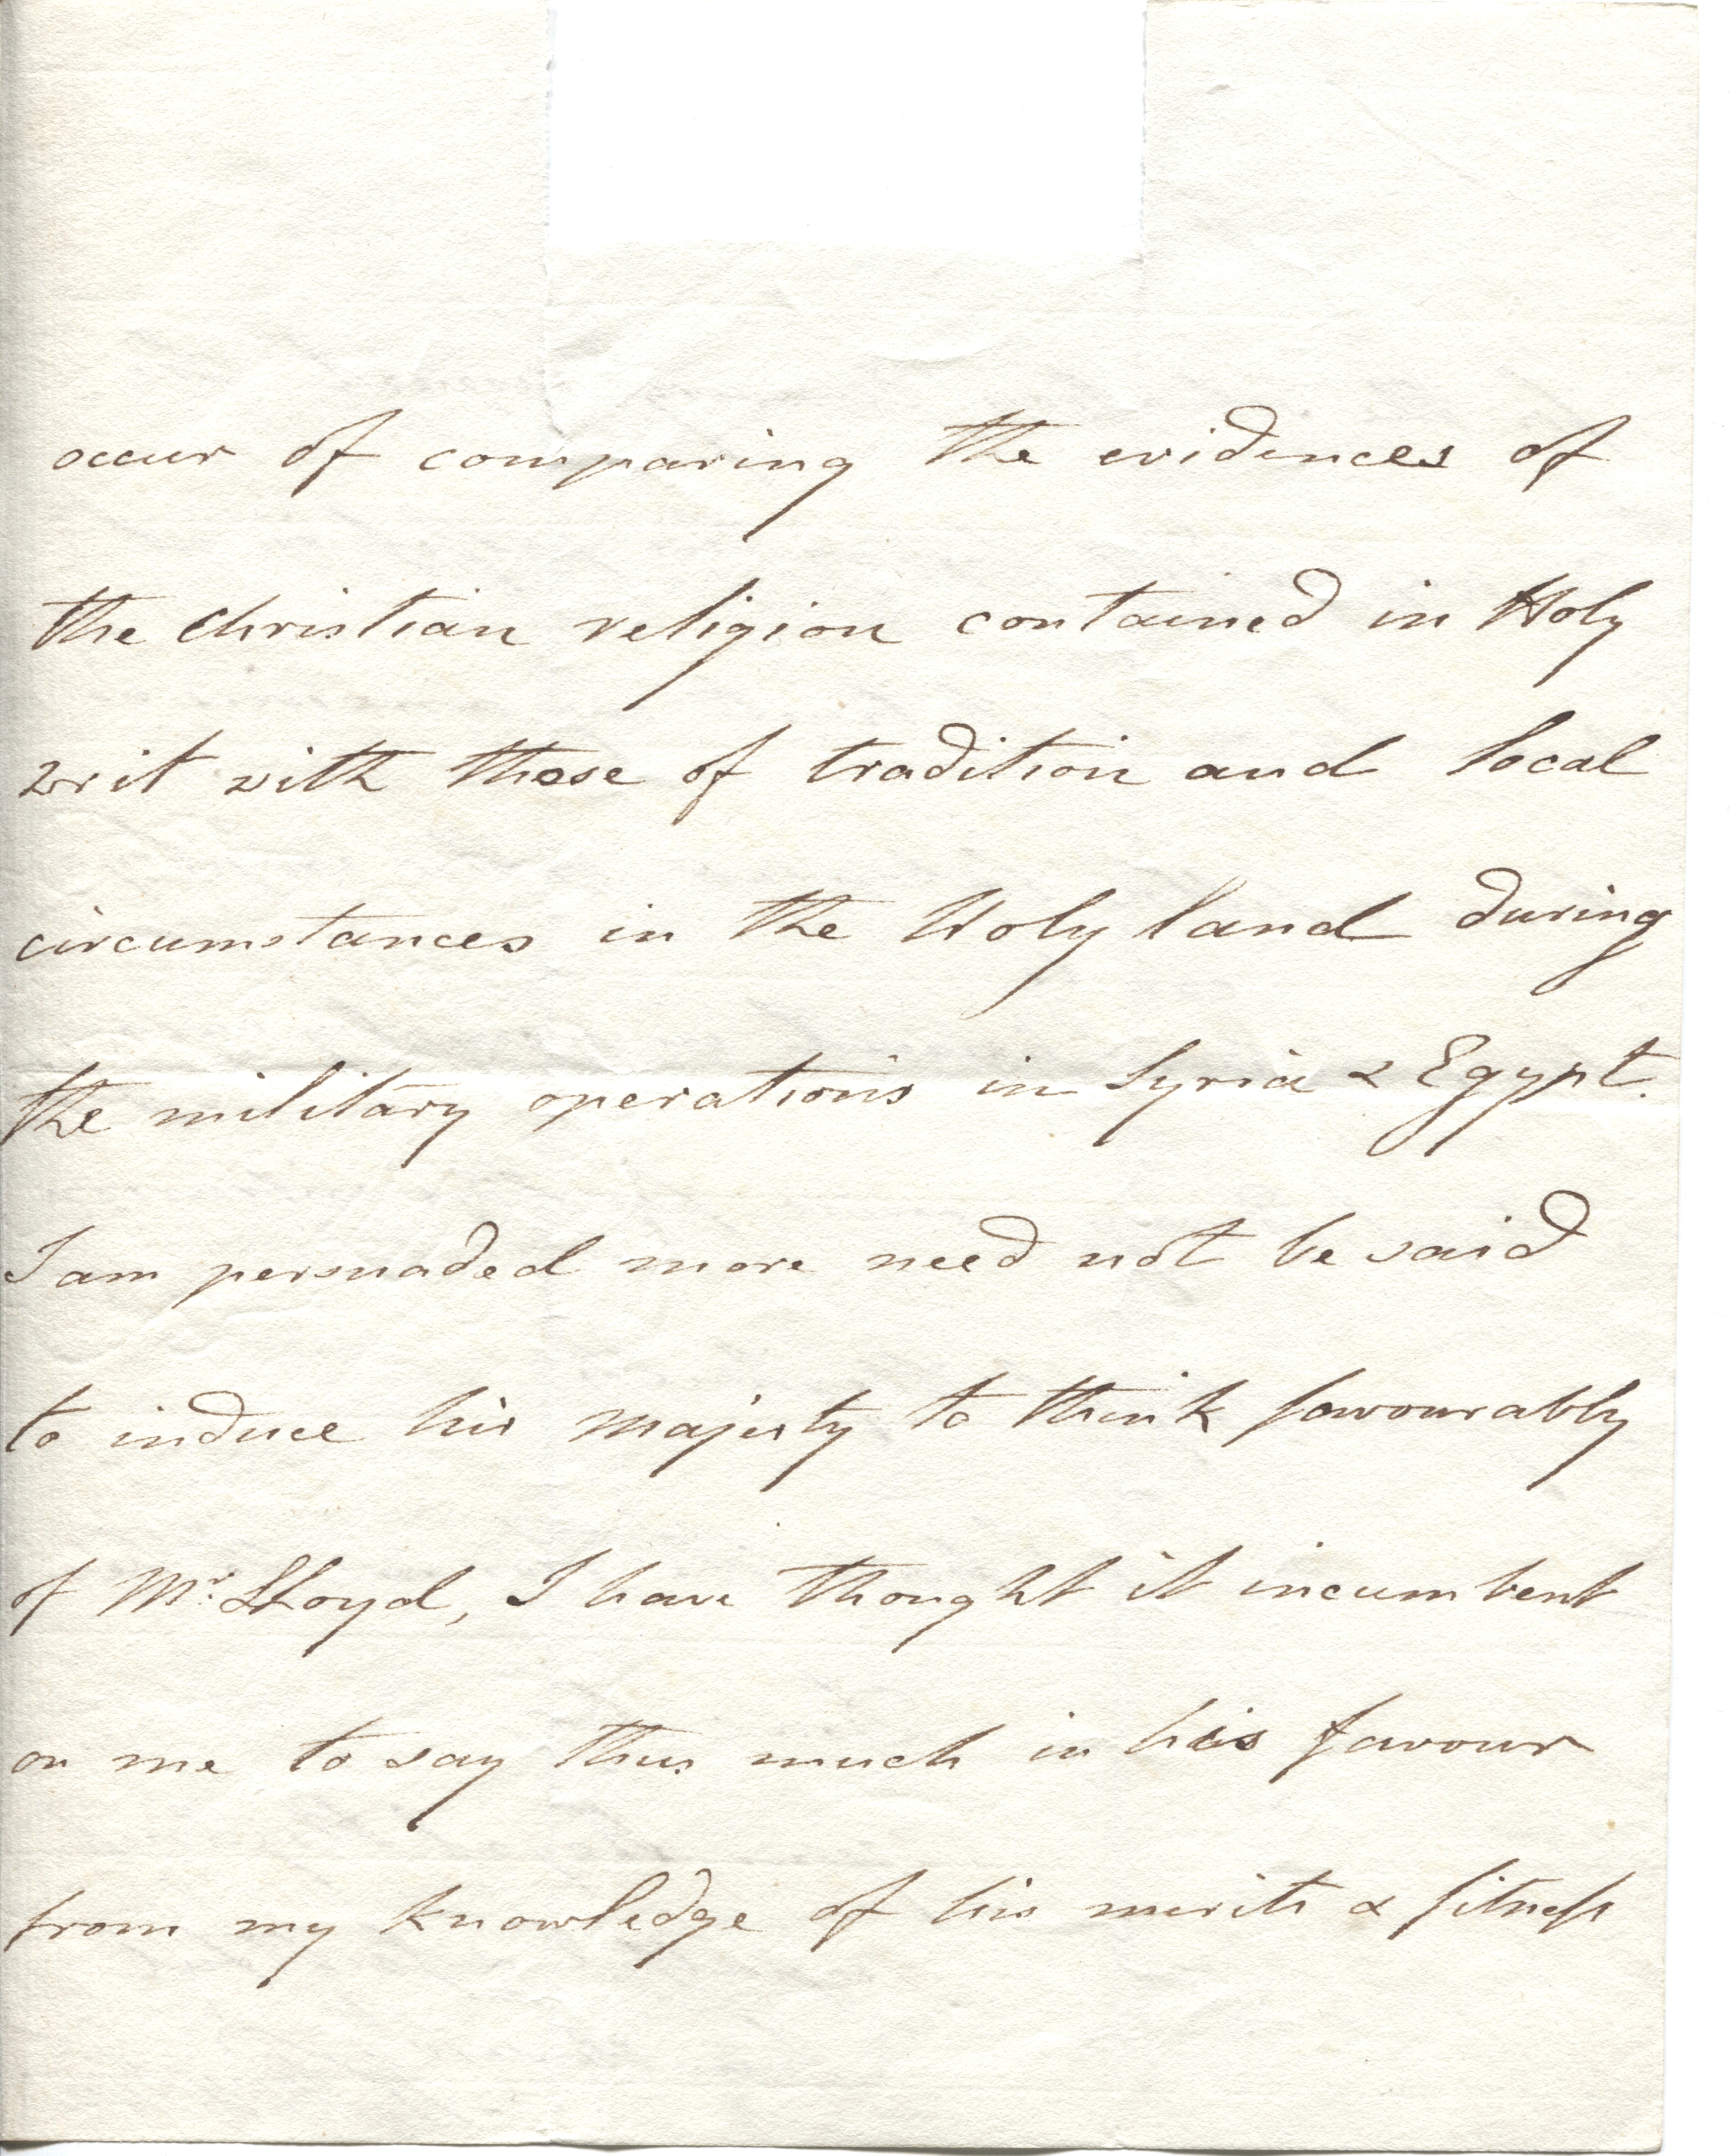 occur of comparing the evidences of
the Christian religion contained in Holy
writ with those of tradition and local
circumstances in the Holy land during
the military operations in Syria & Egypt.
I am persuaded more need not be said
to induce his majesty to think favourably
of Mr. Lloyd, I have thought it incumbent
on me to say thus much in his favour
from my knowledge of his merits & fitness